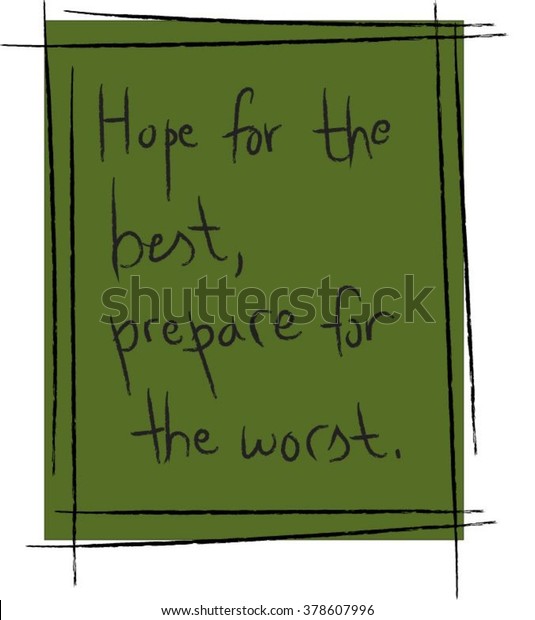 Hope for the
best,
shutterstock
prepare for
the worst.
www.shutterstock.com · 378607996